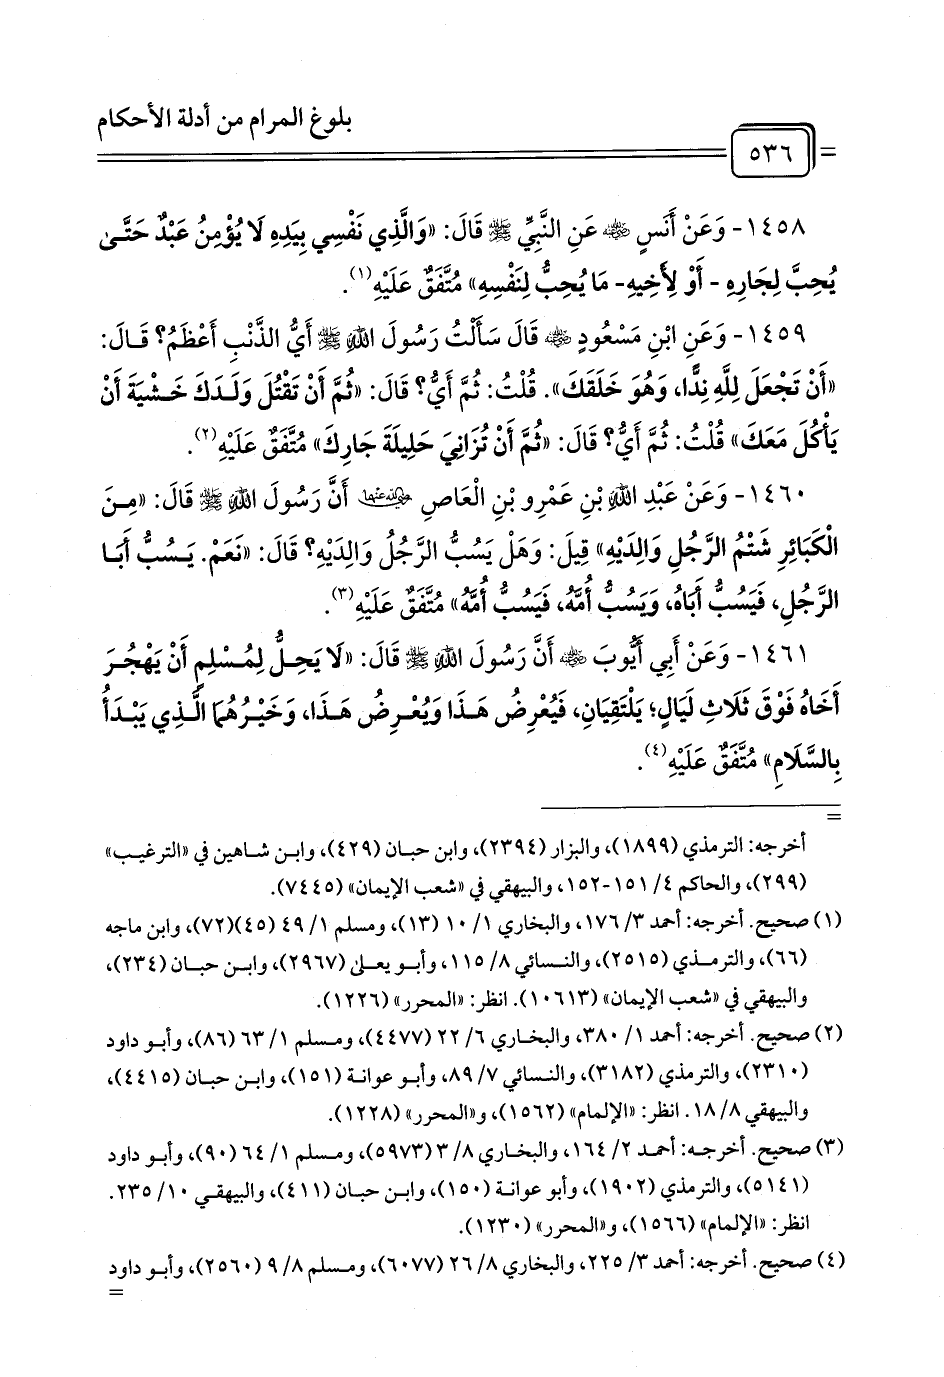 بلوغ المرام من أدلة الأحكام
= ٥٣٦
١٤٥٨- وَعَنْ أَنَسٍ ﵁ عَنِ النَّبِيِّ ﷺ قَالَ: «وَالَّذِي نَفْسِي بِيَدِهِ لَا يُؤْمِنُ عَبْدٌ حَتَّىٰ
يُحِبَّ لِجَارِهِ - أَوْ لِأَخِيهِ- مَا يُحِبُّ لِنَفْسِهِ» مُتَّفَقٌ عَلَيْهِ(١).
١٤٥٩- وَعَنِ ابْنِ مَسْعُودٍ ﵁ قَالَ سَأَلْتُ رَسُولَ اللهِ ﷺ أَيُّ الذَّنْبِ أَعْظَمُ؟ قَالَ:
«أَنْ تَجْعَلَ لِلَّهِ نِدًّا، وَهُوَ خَلَقَكَ». قُلْتُ: ثُمَّ أَيُّ؟ قَالَ: «ثُمَّ أَنْ تَقْتُلَ وَلَدَكَ خَشْيَةَ أَنْ
يَأْكُلَ مَعَكَ» قُلْتُ: ثُمَّ أَيُّ؟ قَالَ: «ثُمَّ أَنْ تُزَانِيَ حَلِيلَةَ جَارِكَ» مُتَّفَقٌ عَلَيْهِ(٢).
١٤٦٠- وَعَنْ عَبْدِ اللهِ بْنِ عَمْرِو بْنِ الْعَاصِ ﵄ أَنَّ رَسُولَ اللهِ ﷺ قَالَ: «مِنَ
الْكَبَائِرِ شَتْمُ الرَّجُلِ وَالِدَيْهِ» قِيلَ: وَهَلْ يَسُبُّ الرَّجُلُ وَالِدَيْهِ؟ قَالَ: «نَعَمْ. يَسُبُّ أَبَا
الرَّجُلِ، فَيَسُبُّ أَبَاهُ، وَيَسُبُّ أُمَّهُ، فَيَسُبُّ أُمَّهُ» مُتَّفَقٌ عَلَيْهِ(٣).
١٤٦١- وَعَنْ أَبِي أَيُّوبَ ﵁ أَنَّ رَسُولَ اللهِ ﷺ قَالَ: «لَا يَحِلُّ لِمُسْلِمٍ أَنْ يَهْجُرَ
أَخَاهُ فَوْقَ ثَلَاثِ لَيَالٍ؛ يَلْتَقِيَانِ، فَيُعْرِضُ هَذَا وَيُعْرِضُ هَذَا، وَخَيْرُهُمَا الَّذِي يَبْدَأُ
بِالسَّلَامِ» مُتَّفَقٌ عَلَيْهِ(٤).
=
أخرجه: الترمذي (١٨٩٩)، والبزار (٢٣٩٤)، وابن حبان (٤٢٩)، وابن شاهين في «الترغيب»
(٢٩٩)، والحاكم ٤/ ١٥١-١٥٢، والبيهقي في «شعب الإيمان» (٧٤٤٥).
(١) صحيح. أخرجه: أحمد ٣/ ١٧٦، والبخاري ١/ ١٠ (١٣)، ومسلم ١/ ٤٩ (٤٥)(٧٢)، وابن ماجه
(٦٦)، والترمذي (٢٥١٥)، والنسائي ٨/ ١١٥، وأبو يعلى (٢٩٦٧)، وابن حبان (٢٣٤)،
والبيهقي في «شعب الإيمان» (١٠٦١٣). انظر: «المحرر» (١٢٢٦).
(٢) صحيح. أخرجه: أحمد ١/ ٣٨٠، والبخاري ٦/ ٢٢ (٤٤٧٧)، ومسلم ١/ ٦٣ (٨٦)، وأبو داود
(٢٣١٠)، والترمذي (٣١٨٢)، والنسائي ٧/ ٨٩، وأبو عوانة (١٥١)، وابن حبان (٤٤١٥)،
والبيهقي ٨/ ١٨. انظر: «الإلمام» (١٥٦٢)، و«المحرر» (١٢٢٨).
(٣) صحيح. أخرجه: أحمد ٢/ ١٦٤، والبخاري ٨/ ٣ (٥٩٧٣)، ومسلم ١/ ٦٤ (٩٠)، وأبو داود
(٥١٤١)، والترمذي (١٩٠٢)، وأبو عوانة (١٥٠)، وابن حبان (٤١١)، والبيهقي ١٠/ ٢٣٥.
انظر: «الإلمام» (١٥٦٦)، و«المحرر» (١٢٣٠).
(٤) صحيح. أخرجه: أحمد ٣/ ٢٢٥، والبخاري ٨/ ٢٦ (٦٠٧٧)، ومسلم ٨/ ٩ (٢٥٦٠)، وأبو داود
=